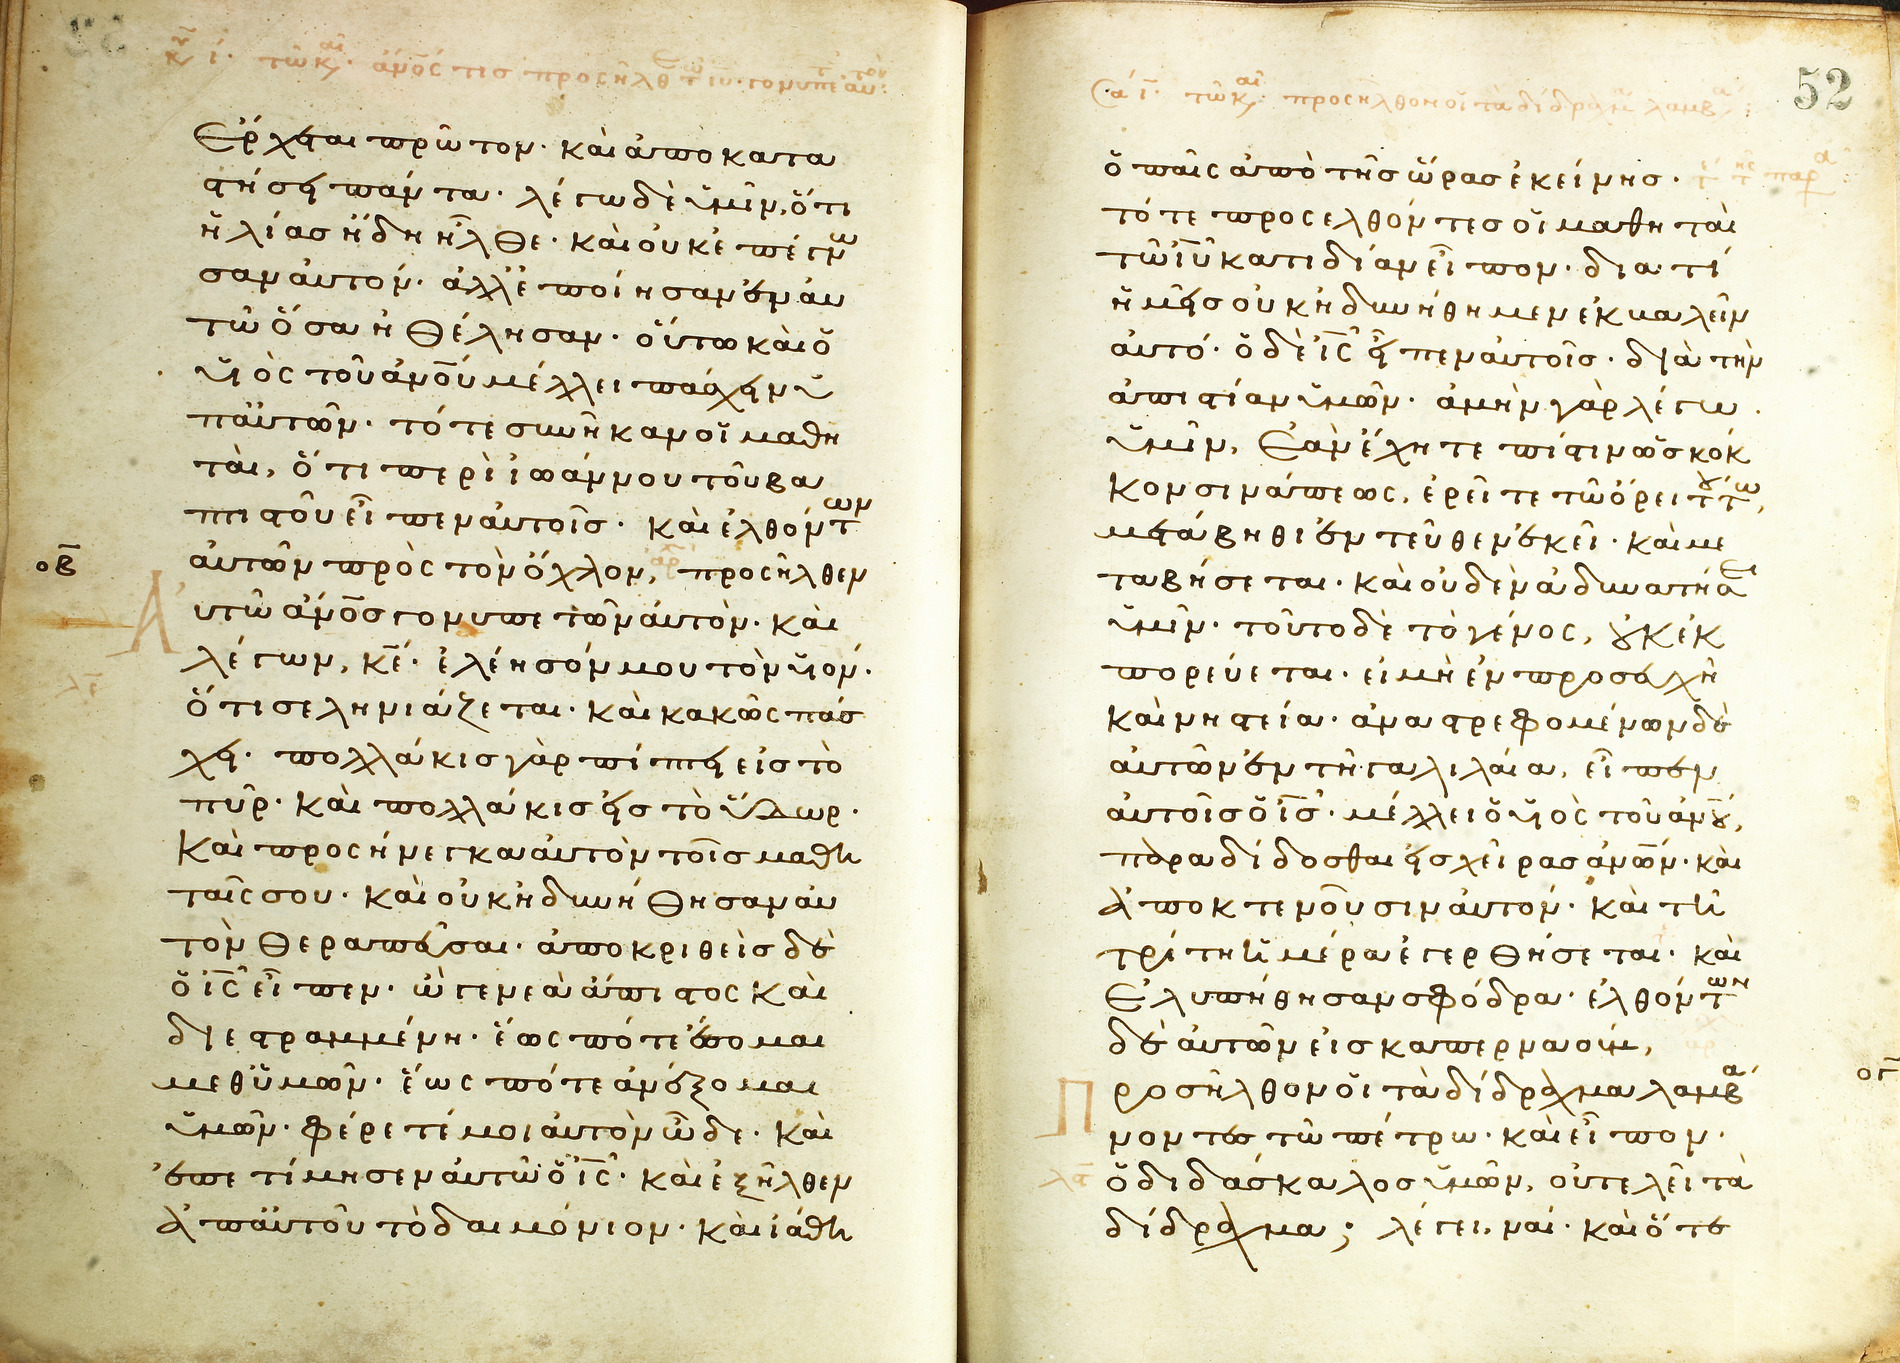 τῶ κ αι. ἀνο̅ς τισ προσῆλθ τ ιυ. γονυπε αυ:
Ἔρχεται πρῶτον· καὶ ἀποκατα
στήσει πάντα· λέγω δὲ ὑμῖν, ὅτι
ἠλίασ ἤδη ἦλθε· καὶ οὐκ ἐπέγνω
σαν αὐτόν· ἀλλ' ἐποίησαν ἐν αυ
τῶ ὅσα ἠθέλησαν· οὕτω καὶ ὁ
υἱὸς τοῦ ἀνο̅υ μέλλει πάσχειν ὑ
π' αὐτῶν· τότε συνῆκαν οἱ μαθη
ταὶ, ὅτι περὶ ἰωάννου τοῦ βα
πτιστοῦ εἶπεν αὐτοῖσ· καὶ ἐλθόντων
οβ̅
αὐτῶν πρὸς τὸν ὄχλον, προσῆλθεν
Α
υτῶ ἀνο̅σ γονυπετῶν αὐτὸν· καὶ
λέγων, κε̅· ἐλέησόν μου τὸν υἱόν·
ὅτι σεληνιάζεται· καὶ κακῶς πάσ
χει· πολλάκισ γὰρ πίπτει εἰσ τὸ
πῦρ· καὶ πολλάκισ εἰσ τὸ ὕδωρ·
Καὶ προσήνεγκα αὐτὸν τοῖσ μαθη
ταῖς σου· καὶ οὐκ ἠδυνήθησαν αυ
τὸν θεραπεῦσαι· ἀποκριθεὶσ δὲ
ὁ ις̅ εἶπεν· ὦ γενεὰ ἄπιστος καὶ
διεστραμμένη· ἕως πότε ἔσομαι
μεθ' ὑμῶν· ἕως πότε ἀνέξομαι
ὑμῶν· φέρετέ μοι αὐτὸν ὧδε· Καὶ
ἐπετίμησεν αὐτῶ ὁ ις̅· καὶ ἐξῆλθεν
ἀπ' αὐτοῦ τὸ δαιμόνιον· Καὶ ἰάθη
52
τῶ κ αι: προσῆλθον οἱ τὰ δίδραχμ λαμβ α:
ὁ παῖς ἀπὸ τῆσ ὥρασ ἐκείνησ·
τότε προσελθόντεσ οἱ μαθηταὶ
τῶ ιυ̅ κατιδίαν εἶπον· διατί
ἡμεῖσ οὐκ ἠδυνήθημεν ἐκβαλεῖν
αὐτό· ὁ δὲ ις̅ εἶπεν αὐτοῖσ· διὰ τὴν
ἀπιστίαν ὑμῶν· ἀμὴν γὰρ λέγω·
ὑμῖν, Ἐὰν ἔχητε πίστιν ὡσ κόκ
κον σινάπεως, ἐρεῖτε τῶ ὄρει τούτω,
μετάβηθι ἐντεῦθεν ἐκεῖ· καὶ με
ταβήσεται· καὶ οὐδὲν ἀδυνατήσει
ὑμῖν· τοῦτο δὲ τὸ γένος, οὐκ ἐκ
πορεύεται· εἰ μὴ ἐν προσευχῆ
καὶ νηστεία· ἀναστρεφομένων δὲ
αὐτῶν ἐν τῆ γαλιλαία, εἶπεν
αὐτοῖσ ὁ ισ̅· μέλλει ὁ υἱὸς τοῦ ἀνο̅υ,
παραδίδοσθαι εἰσ χεῖρασ ἀνω̅ν· καὶ
ἀποκτενοῦσιν αὐτόν· καὶ τῆ
τρίτη ἡμέρα ἐγερθήσεται· καὶ
Ἐλυπήθησαν σφόδρα· ἐλθόντων
δὲ αὐτῶν εἰσ καπερναούμ,
ογ̅
Π
ροσῆλθον οἱ τὰ δίδραχμα λαμβά
νοντεσ τῶ πέτρω· καὶ εἶπον·
λα̅
ὁ διδάσκαλοσ ὑμῶν, οὐ τελεῖ τὰ
δίδραχμα; λέγει, ναί· καὶ ὅτε